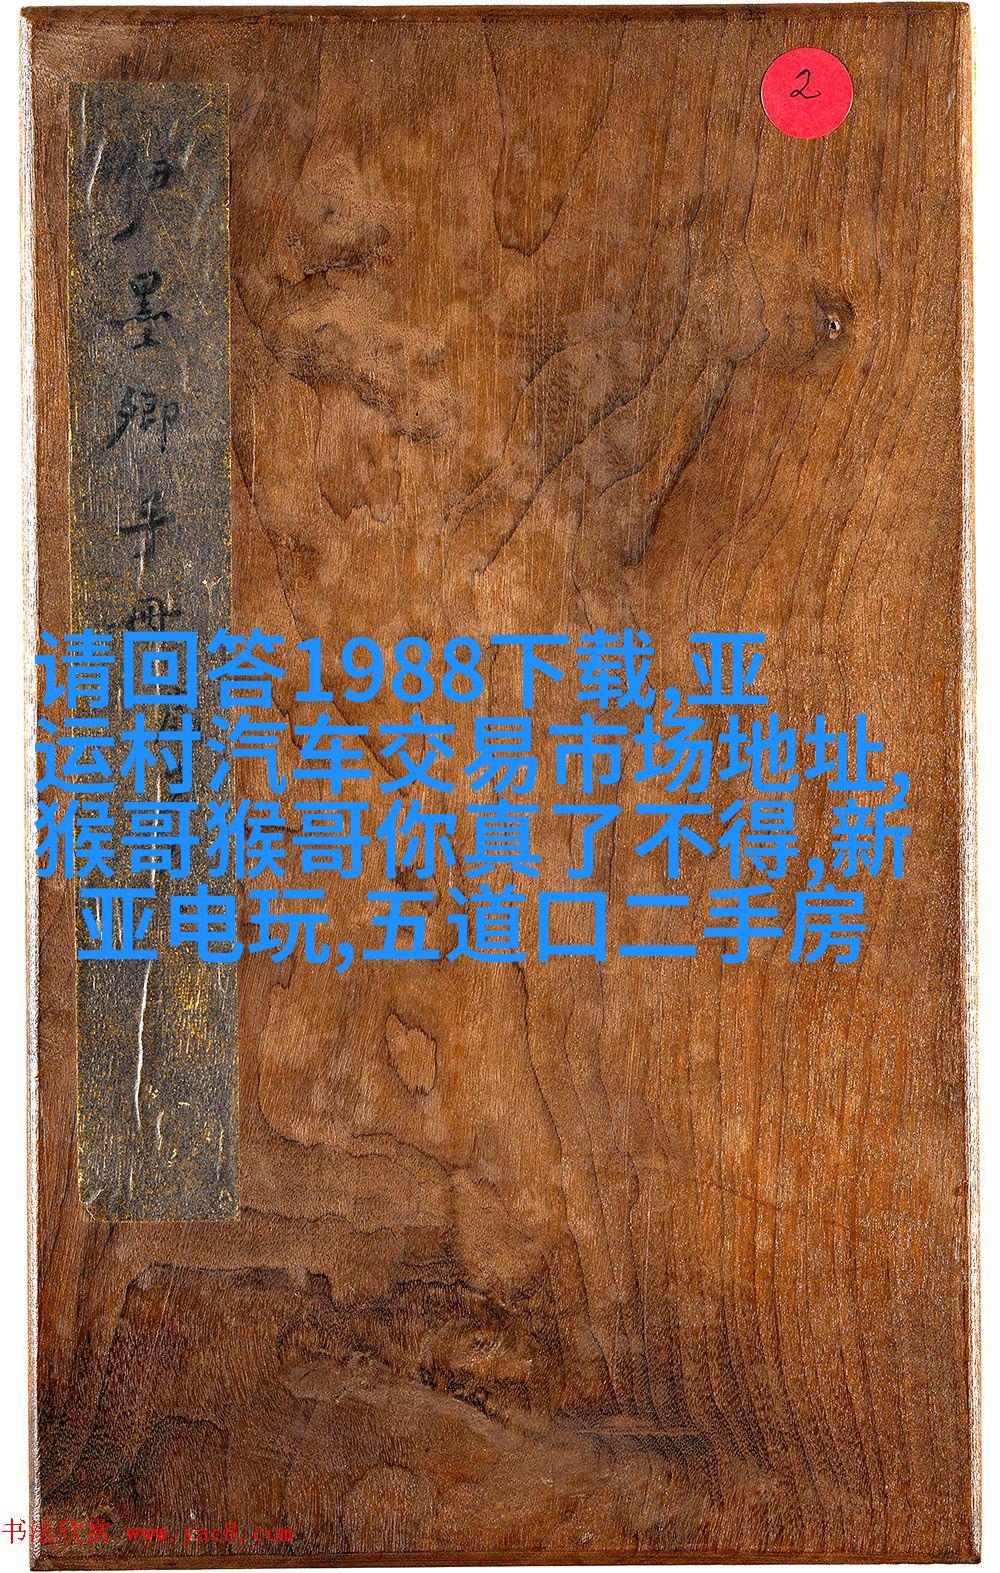 2
墨卿手冊
请回答1988下载,亚
运村汽车交易市场地址,
猴哥猴哥你真了不得,新
亚电玩,五道口二手房
书法欣赏 www.yac8.com